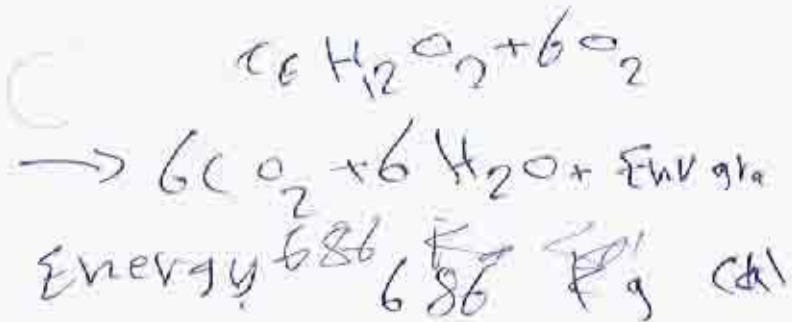 C6H12O2+6O2
→ 6CO2+6H2O+
Energy 686 686 Kg Cal